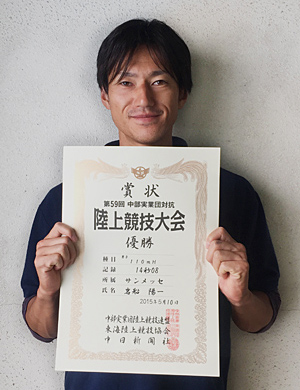 賞状
第59回 中部実業団対抗
陸上競技大会
優勝
種目 男子 110mH
記録 14秒08
所属 サンメッセ
氏名 高松 陽一
2015年5月10日
中部実業団陸上競技連盟
東海陸上競技協会
中日新聞社